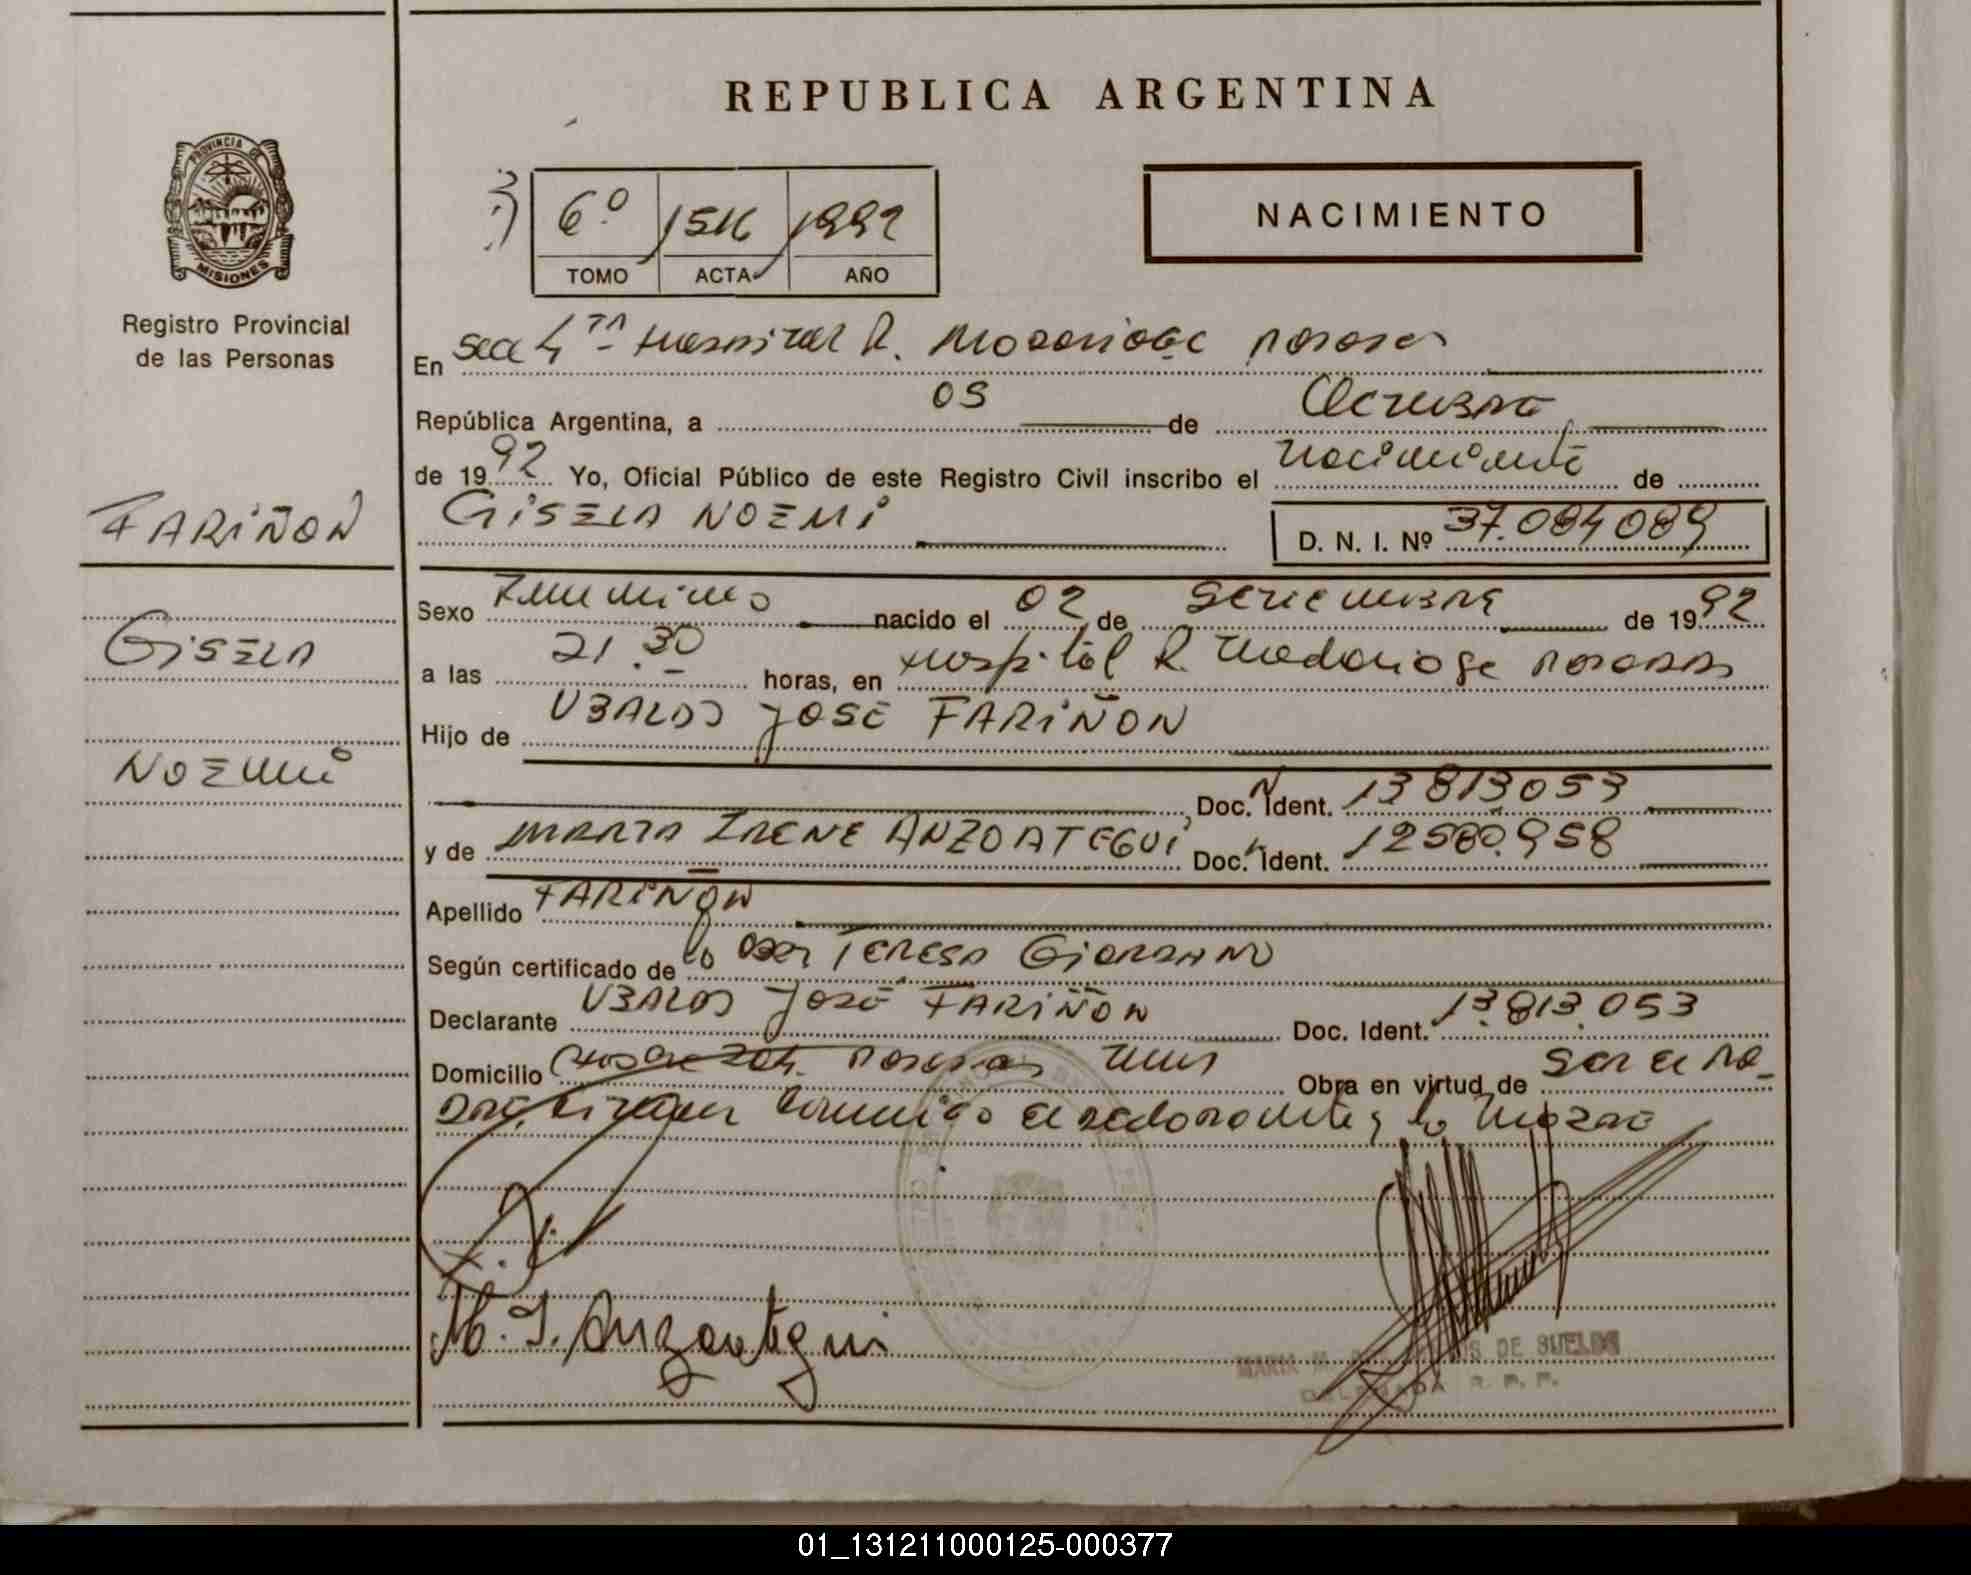 REPUBLICA ARGENTINA
PROVINCIA DE
MISIONES
Registro Provincial
de las Personas
NACIMIENTO
6º 1992
TOMO ACTA AÑO
En Sec 4ta Hospital R. Madariaga Posadas
República Argentina, a 05 de Octubre
de 1992 Yo, Oficial Público de este Registro Civil inscribo el Nacimiento de
FARIÑON
GISELA NOEMI
D. N. I. Nº 37.084089
Sexo Femenino nacido el 02 de Setiembre de 1992
GISELA
a las 21.30 horas, en Hospital R. Madariaga Posadas
Hijo de UBALDO JOSE FARIÑON
NOEMI
Doc. Ident. 13813053
y de MARIA IRENE ANZOATEGUI Doc. Ident. 12580.958
Apellido FARIÑON
Según certificado de la TERESA GIORDANO
Declarante UBALDO JOSE FARIÑON Doc. Ident. 13.813.053
Domicilio Posadas Mnes Obra en virtud de Ser el Pa-
dre, firman conmigo el declarante y la Madre
M. I. Anzoategui
MARIA M. DE SUELDO
DELEGADA R. P. P.
01_131211000125-000377